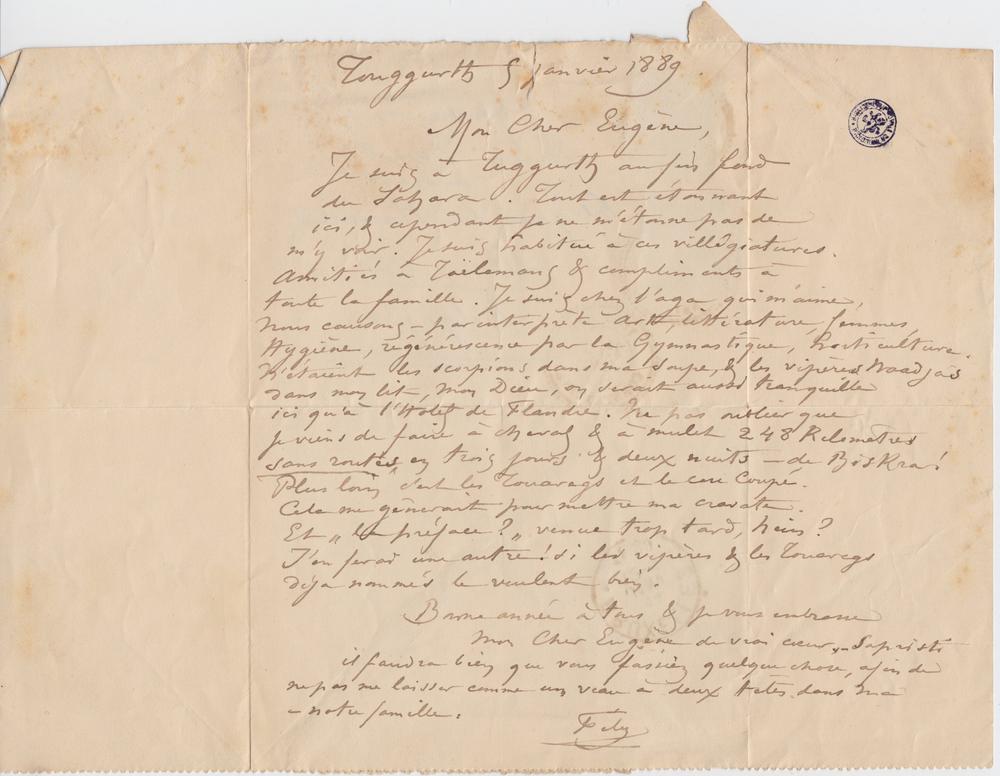 Touggurth 5 janvier 1889
Mon Cher Eugène,
Je suis à Tuggurth au fin fond
du Sahara. Tout est étonnant
ici, & cependant je ne m'étonne pas de
m'y voir. Je suis habitué à ces villégiatures.
Amitiés à & compliments à
toute la famille. Je suis chez l'aga qui m'aime,
Nous causons – par interprète Arts, littérature, femmes,
Hygiène, régénérescence par la Gymnastique, horticulture.
N'étaient les scorpions dans ma soupe, & les vipères Naadjas
dans mon lit, mon Dieu, on serait aussi tranquille
ici qu'à l'Hotel de Flandre. Ne pas oublier que
je viens de faire à cheval & à mulet 248 Kilometres
sans routes, en trois jours & deux nuits – de Biskra!
Plus loin c'est les Touaregs et le cou coupé.
Cela me gênerait pour mettre ma cravate.
Et „La préface?„ venue trop tard, hein?
J'en ferai une autre! si les vipères & les Touaregs
déja nommés le veulent bien.
Bonne année à tous & je vous embrasse
mon Cher Eugène de vrai cœur, – Sapristi
il faudra bien que vous fassiez quelque chose, afin de
ne pas me laisser comme un veau à deux têtes dans ma
– notre famille.
Fély